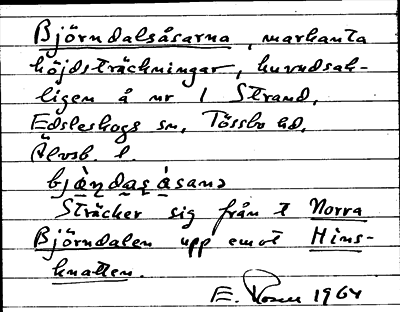 Björndalsåsarna, markanta
höjdsträckningar, huvudsak-
ligen å nr 1 Strand,
Edsleskogs sn, Tössbo hd,
Älvsb. l.
bjæ̀n̥das̥ ásanə
Sträcker sig från t Norra
Björndalen upp emot Hins-
knatten.
E. 1964